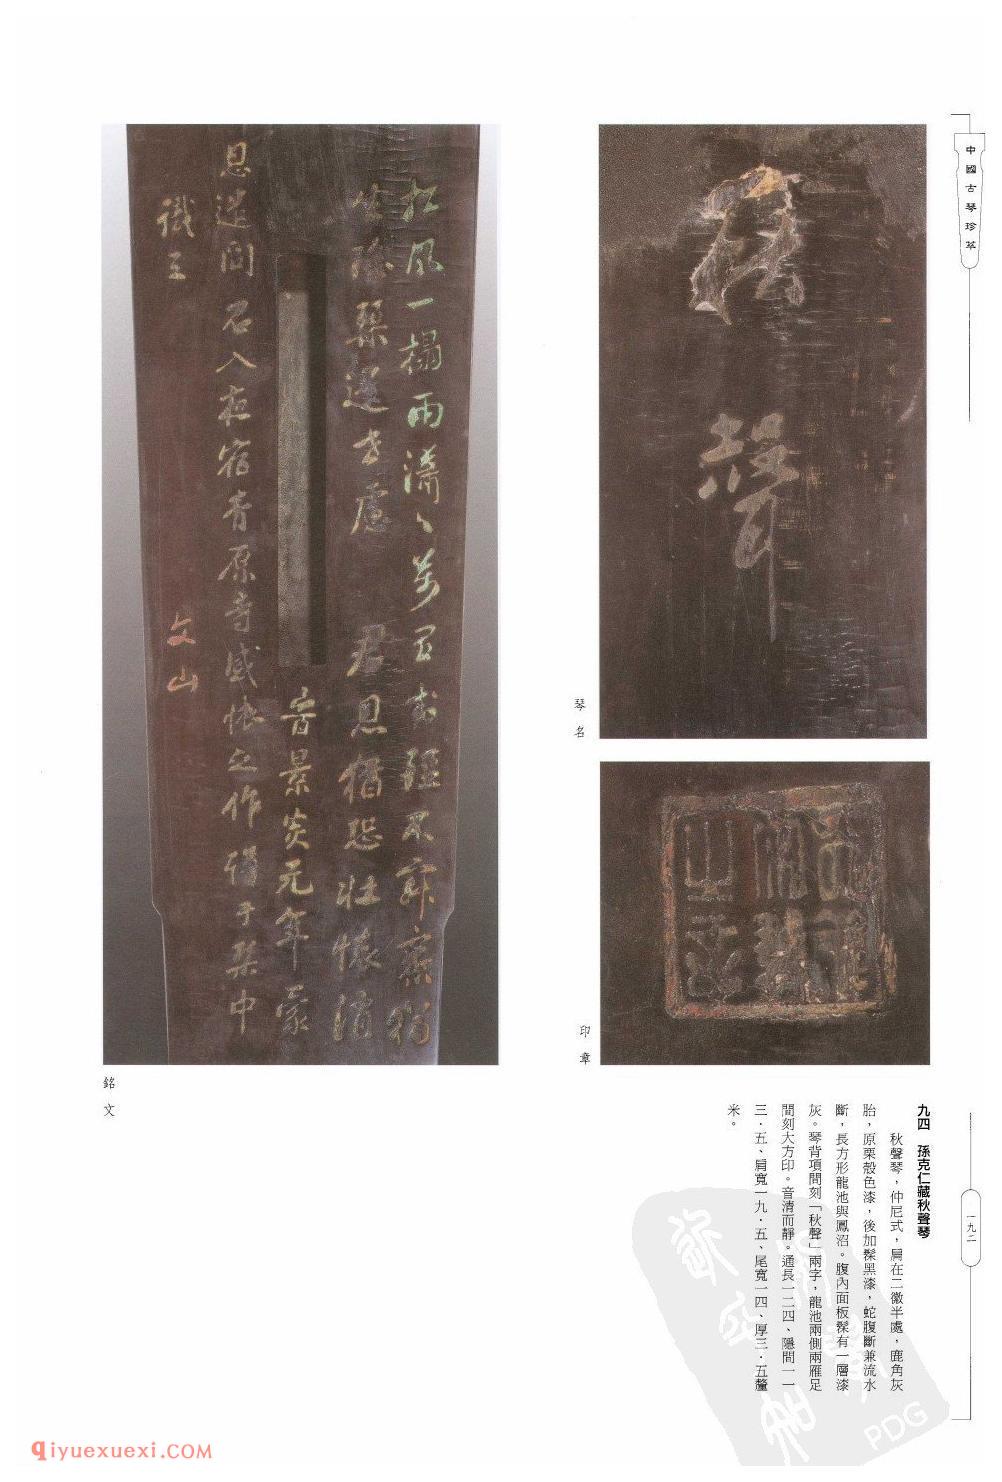 中國古琴珍萃
聲
琴名
印章
松風一榻雨瀟々萬里封疆不寂寥獨
坐瑤琴遣世慮 君恩猶恐壯懷消
音景炎元年蒙
恩遣 召入夜宿青原寺感懷之作 于琴中
識之
文山
銘文
九四 孫克仁藏秋聲琴
秋聲琴，仲尼式，肩在二徽半處，鹿角灰
胎，原栗殼色漆，後加髹黑漆，蛇腹斷兼流水
斷，長方形龍池與鳳沼。腹內面板髹有一層漆
灰。琴背項間刻「秋聲」兩字，龍池兩側兩雁足
間刻大方印。音清而靜。通長一二四、隱間一一
三·五、肩寬一九·五、尾寬一四、厚三·五釐
米。
一九二
PDG
qiyuexuexi.COM